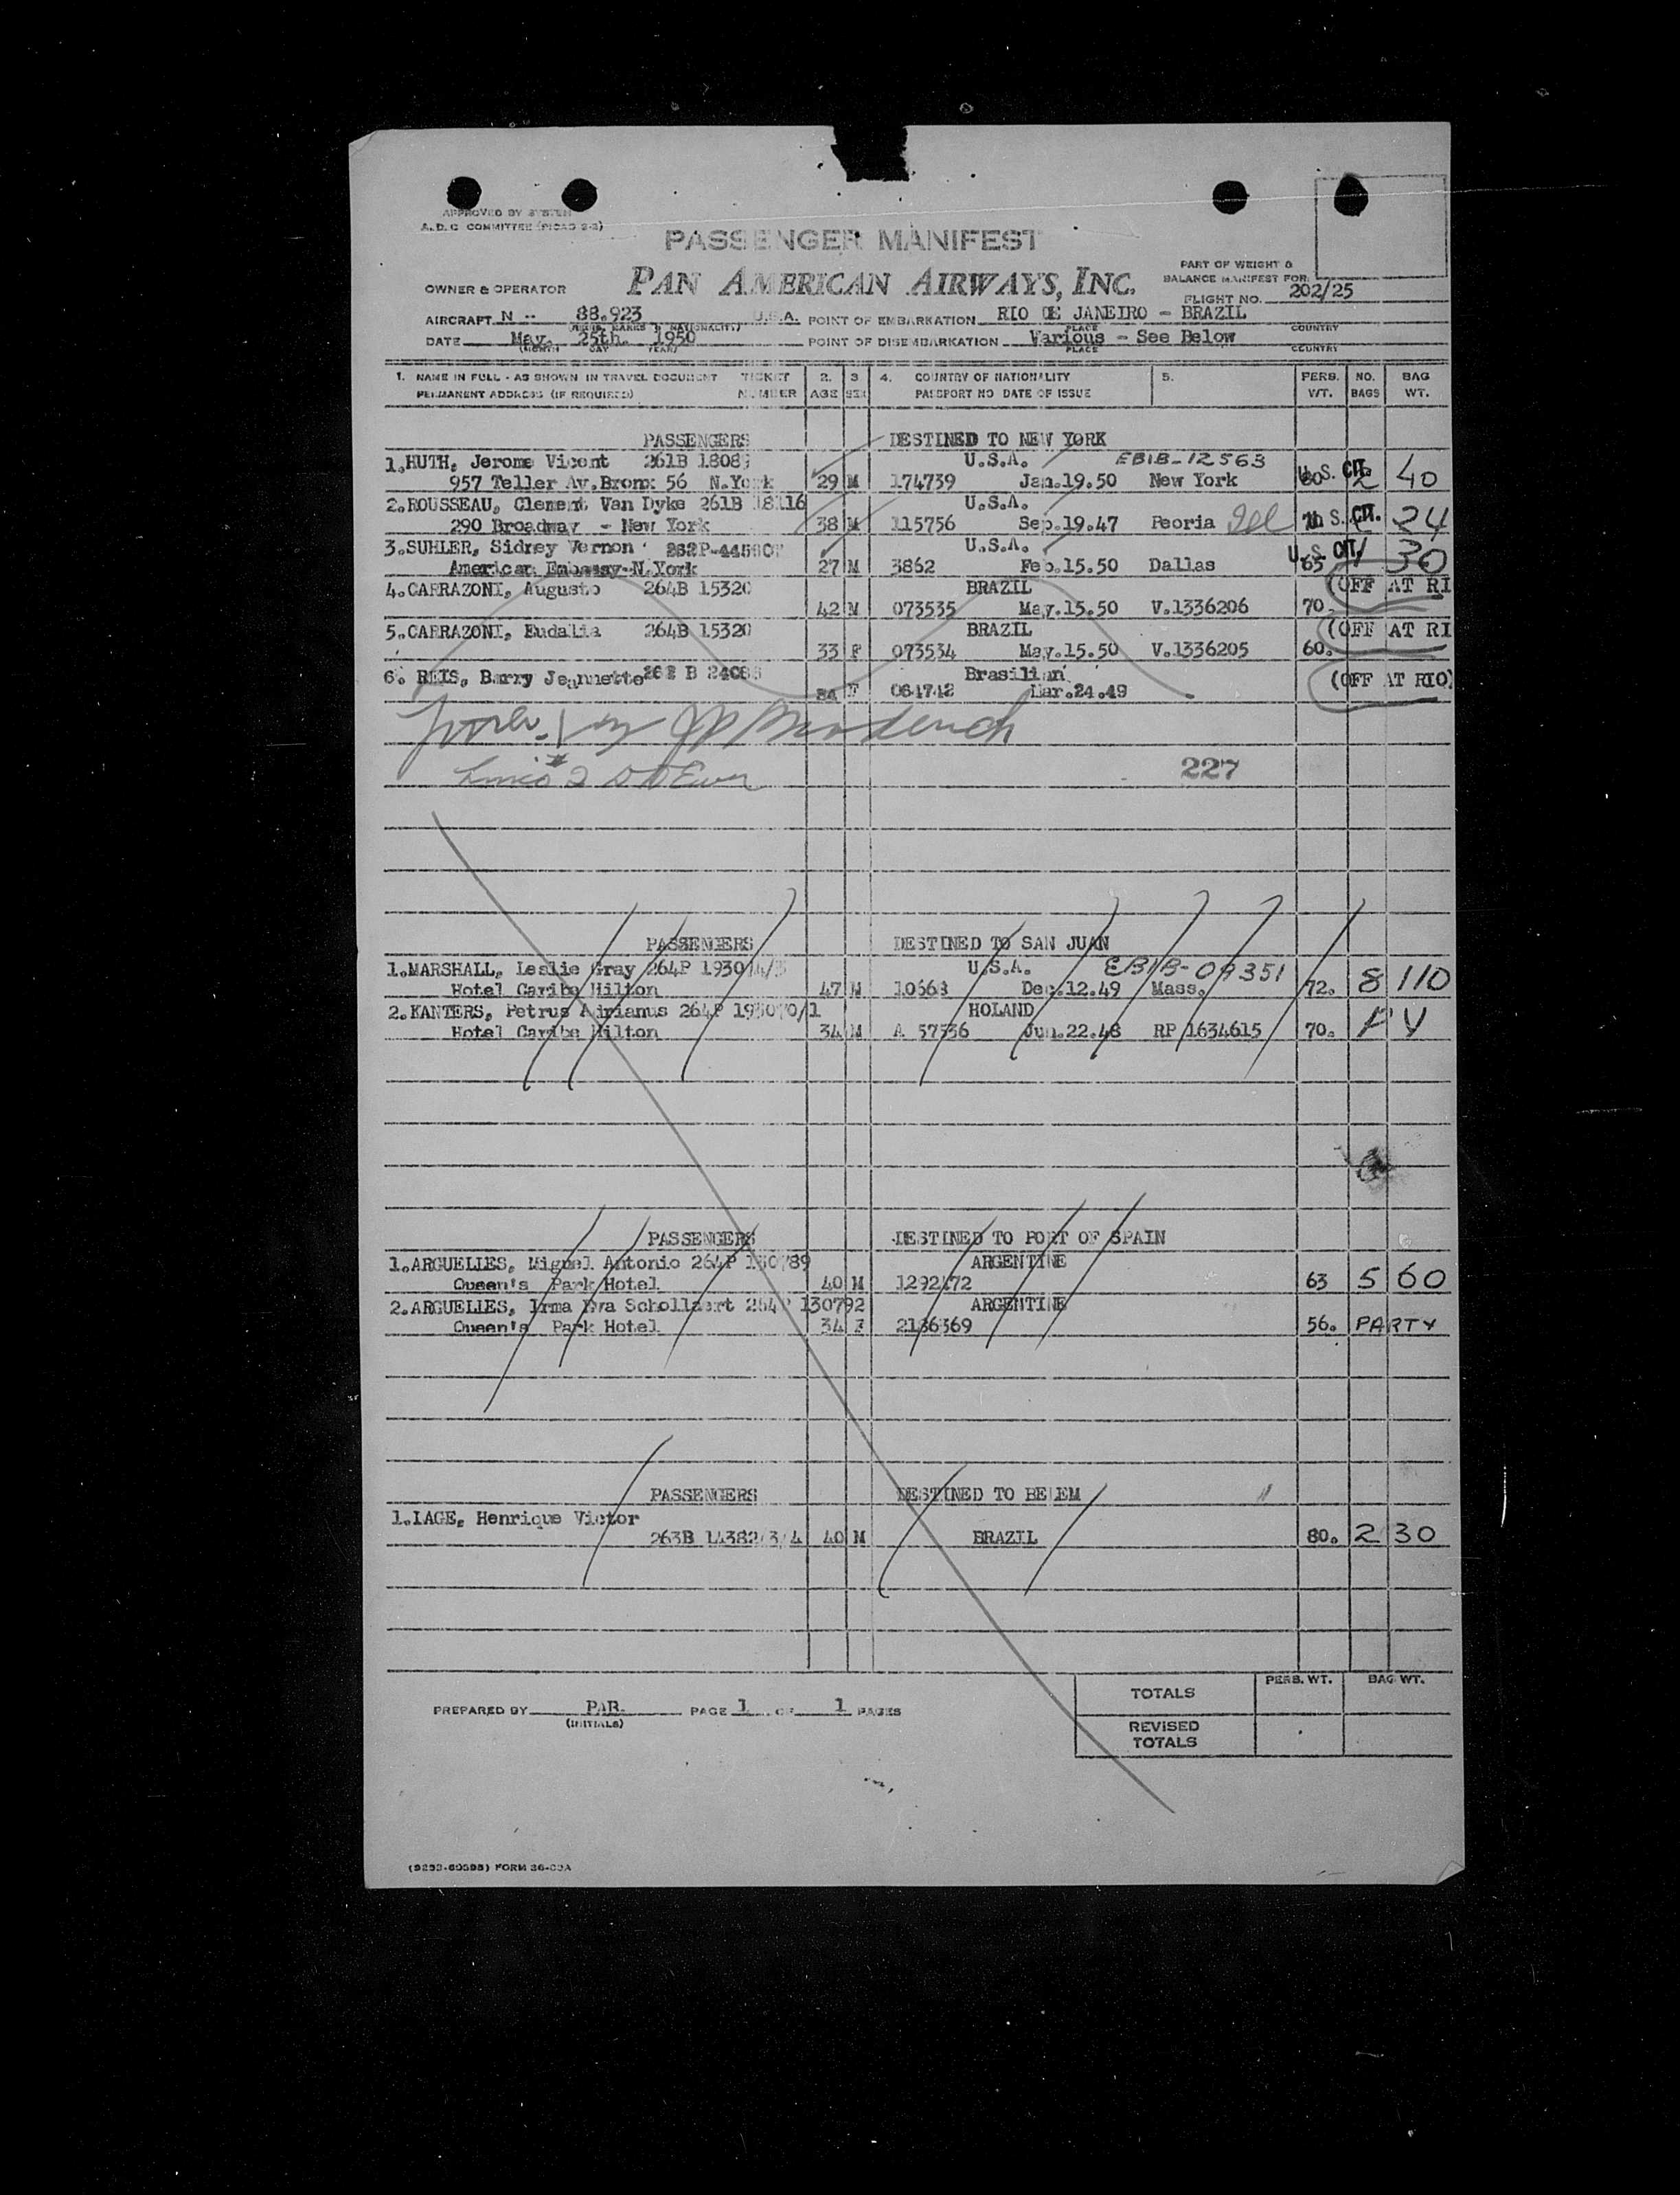 APPROVED BY SYSTEM
A.D.C COMMITTEE (PICAO 2-3)
PASSENGER MANIFEST
PAN AMERICAN AIRWAYS, INC.
PART OF WEIGHT &
BALANCE MANIFEST FOR:
OWNER & OPERATOR
FLIGHT NO. 202/25
AIRCRAFT N -- 88.923 U.S.A. POINT OF EMBARKATION RIO DE JANEIRO - BRAZIL
PLACE COUNTRY
DATE May. 25th. 1950 POINT OF DISEMBARKATION Various - See Below
(MONTH DAY YEAR) PLACE COUNTRY
1. NAME IN FULL - AS SHOWN IN TRAVEL DOCUMENT TICKET 2. 3 4. COUNTRY OF NATIONALITY 5. PERS. NO. BAG
PERMANENT ADDRESS (IF REQUIRED) NUMBER AGE SEX PASSPORT NO DATE OF ISSUE WT. BAGS WT.
PASSENGERS DESTINED TO NEW YORK
1.HUTH, Jerome Vicent 261B 18089 U.S.A. EBIB-12563
957 Teller Av.Bronx 56 N.York 29 M 174739 Jan.19.50 New York U.S. CIT. 2 40
2.ROUSSEAU, Clement Van Dyke 261B 18116 U.S.A.
290 Broadway - New York 38 M 115756 Sep.19.47 Peoria Ill S. CIT. 24
3.SUHLER, Sidney Vernon U.S.A.
American Embassy-N.York 27 M 3862 Feb.15.50 Dallas 65 U.S. CIT. 1 30
4.CARRAZONI, Augusto 264B 15320 BRAZIL (OFF AT RI
42 M 073535 May.15.50 V.1336206 70.
5.CARRAZONI, Eudalia 264B 15320 BRAZIL (OFF AT RI
33 F 073534 May.15.50 V.1336205 60.
6. REIS, Barry Jeannette 262 B Brasilian (OFF AT RIO)
F 064742 Mar.24.49
227
PASSENGERS DESTINED TO SAN JUAN
1.MARSHALL, Leslie Gray 264P U.S.A. EBIB-09351
Hotel Caribe Hilton 47 M 10668 Dec.12.49 Mass. 72. 8 110
2.KANTERS, Petrus Adrianus 264P 193070/1 HOLAND
Hotel Caribe Hilton 34 M A 57536 Jun.22.48 RP 1634615 70. P Y
PASSENGERS DESTINED TO PORT OF SPAIN
1.ARGUELLES, Miguel Antonio 264P 130789 ARGENTINE
Queen's Park Hotel 40 M 1292172 63 5 60
2.ARGUELLES, Irma Eva Schollaert 264P 130792 ARGENTINE
Queen's Park Hotel 34 F 2136369 56. PARTY
PASSENGERS DESTINED TO BELEM
1.IAGE, Henrique Victor
263B 14382/3/4 40 M BRAZIL 80. 2 30
PERS. WT. BAG WT.
TOTALS
PREPARED BY PAR. PAGE 1 OF 1 PAGES
(INITIALS)
REVISED
TOTALS